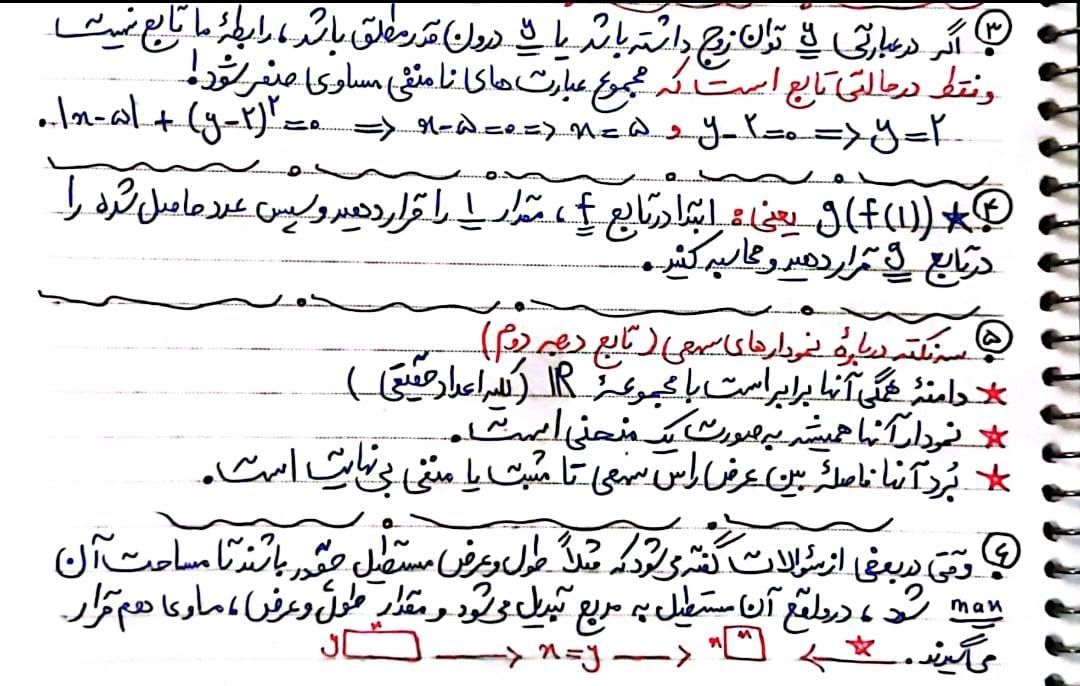 ۳ اگر در عبارتی y توان زوج داشته باشد یا y درون قدر مطلق باشد، رابطهٔ ما تابع نیست
و فقط در حالتی تابع است که مجموع عبارت های نامنفی مساوی صفر شود!
|x-۵| + (y-۲)^۲ = ۰ => x-۵=۰ => x=۵ و y-۲=۰ => y=۲ .
۴ ★ g(f(1)) یعنی: ابتدا در تابع f، مقدار 1 را قرار دهید و سپس عدد حاصل شده را
در تابع g قرار دهید و محاسبه کنید.
۵ سه نکته دربارهٔ نمودارهای سهمی (تابع درجه دوم)
★ دامنهٔ همگی آنها برابر است با مجموعهٔ IR (کلیه اعداد حقیقی)
★ نمودار آنها همیشه به صورت یک منحنی است.
★ بُرد آنها فاصلهٔ بین عرض راس سهمی تا مثبت یا منفی بی نهایت است.
۶ وقتی در بعضی از سؤالات گفته می شود که مثلاً طول و عرض مستطیل چقدر باشند تا مساحت آن
max شود، در واقع آن مستطیل به مربع تبدیل می شود و مقدار طول و عرض، مساوی هم قرار
می گیرند. ★ ← y x → x=y → x x